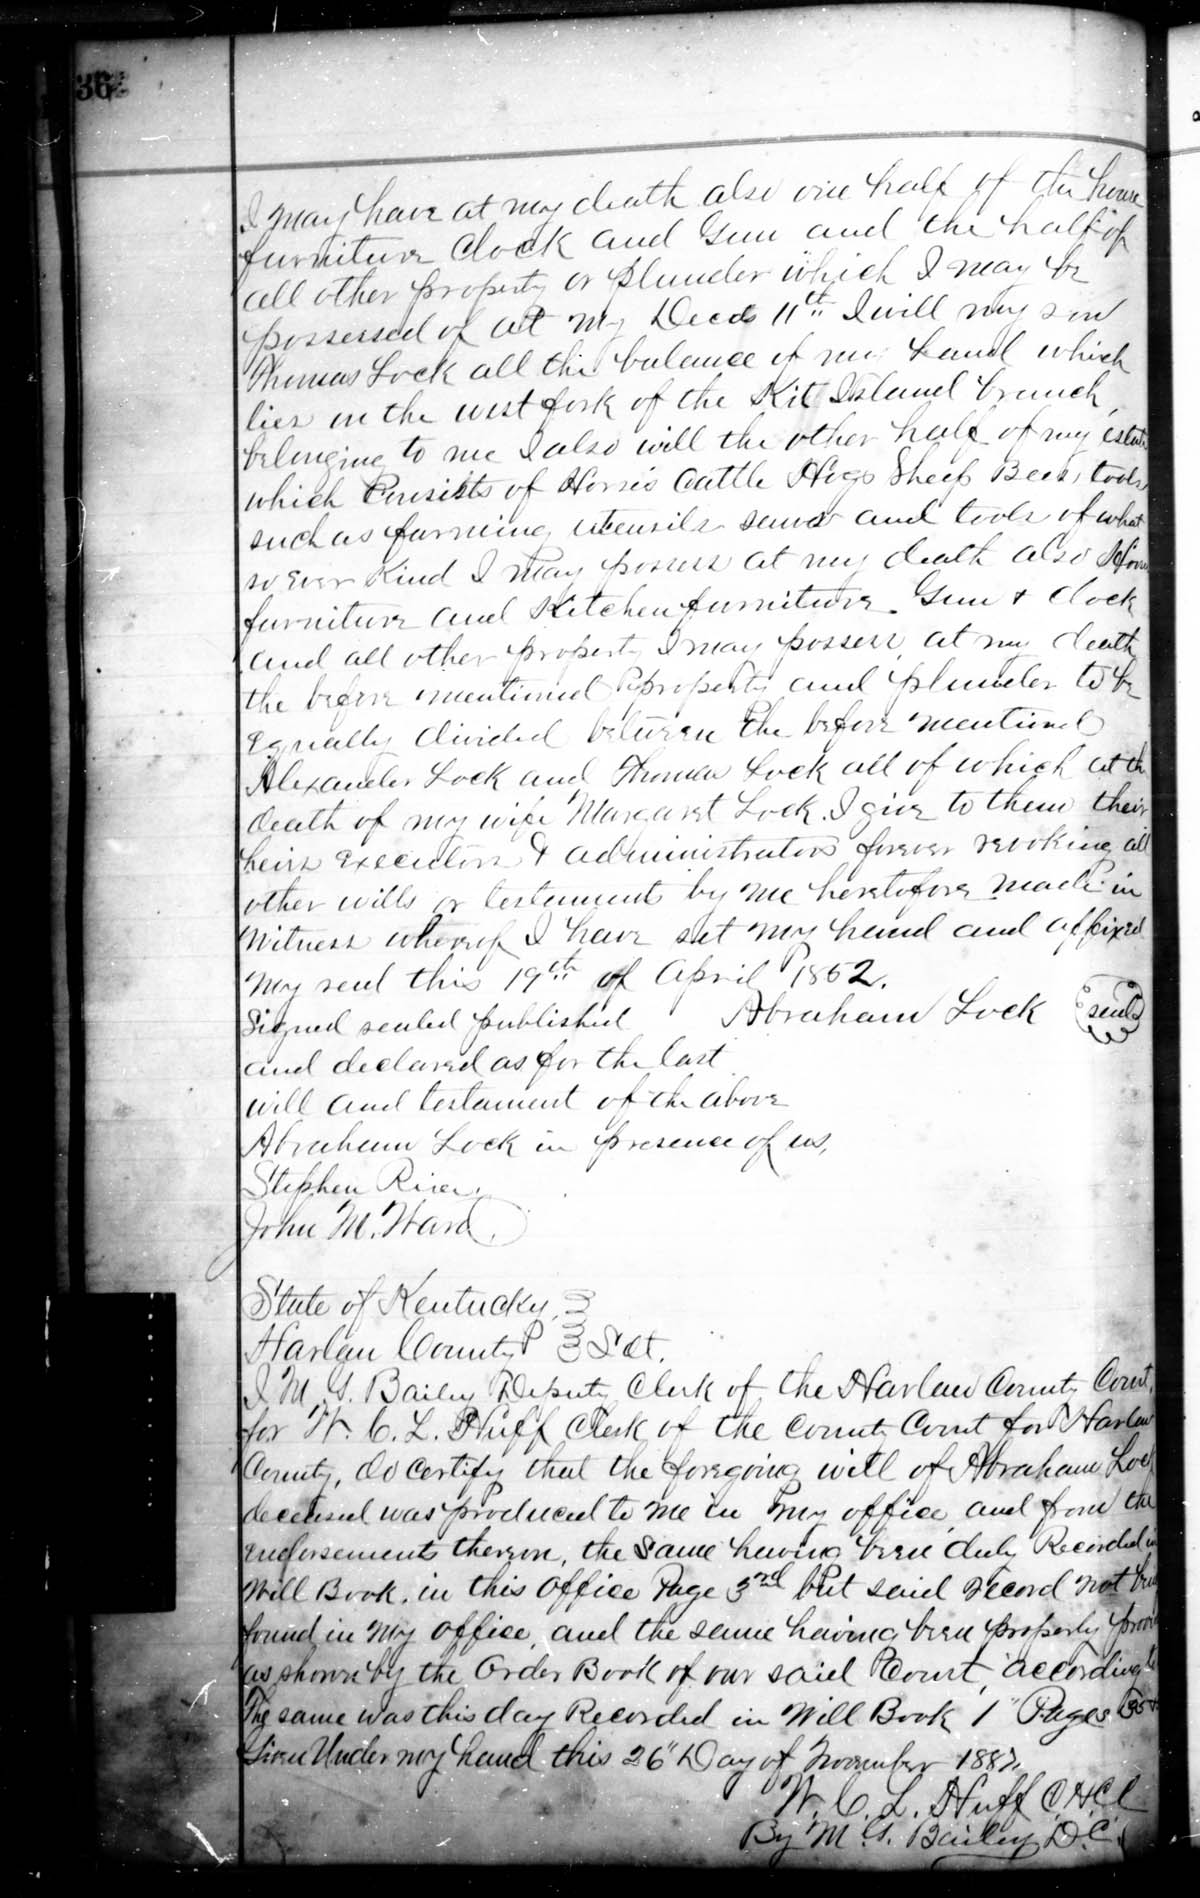 36
I may have at my death also one half of the house
furniture Clock and Gun and the half of
all other property or plunder which I may be
possessed of at my Deces 11th I will my son
Thomas Lock all the balance of my Land which
lies in the west fork of the Kit Island branch
belonging to me I also will the other half of my estate
which Consists of Horses Cattle Hogs Sheep Bees, tools
such as farming utensils and tools of what
so ever Kind I may possess at my death also House
furniture and Kitchen furniture Gun & clock
and all other property I may possess at my death
the before mentioned property and plunder to be
equally divided between the before mentioned
Alexander Lock and Thomas Lock all of which at the
death of my wife Margaret Lock. I give to them their
heirs executors & administrators forever revoking all
other wills or testament by me heretofore made in
Witness whereof I have set my hand and affixed
my seal this 19th of April 1852.
Signed sealed published Abraham Lock seal
and declared as for the last
will and testament of the above
Abraham Lock in presence of us,
Stephen
John M. Ward
State of Kentucky,
Harlan County Sct.
I M. G. Bailey Deputy Clerk of the Harlan County Court,
for W. C. L. Huff Clerk of the County Court for Harlan
County, do certify that the foregoing will of Abraham Lock
deceased was produced to me in my office and from the
endorsements thereon, the same having been duly Recorded in
Will Book, in this office Page 3rd but said record not
found in my office, and the same having been properly
as shown by the Order Book of our said Court,
The same was this day Recorded in Will Book 1" Pages 35
Given Under my hand this 26" Day of November 1887,
W. C. L. Huff C.H.C.C
By M. G. Bailey D.C.